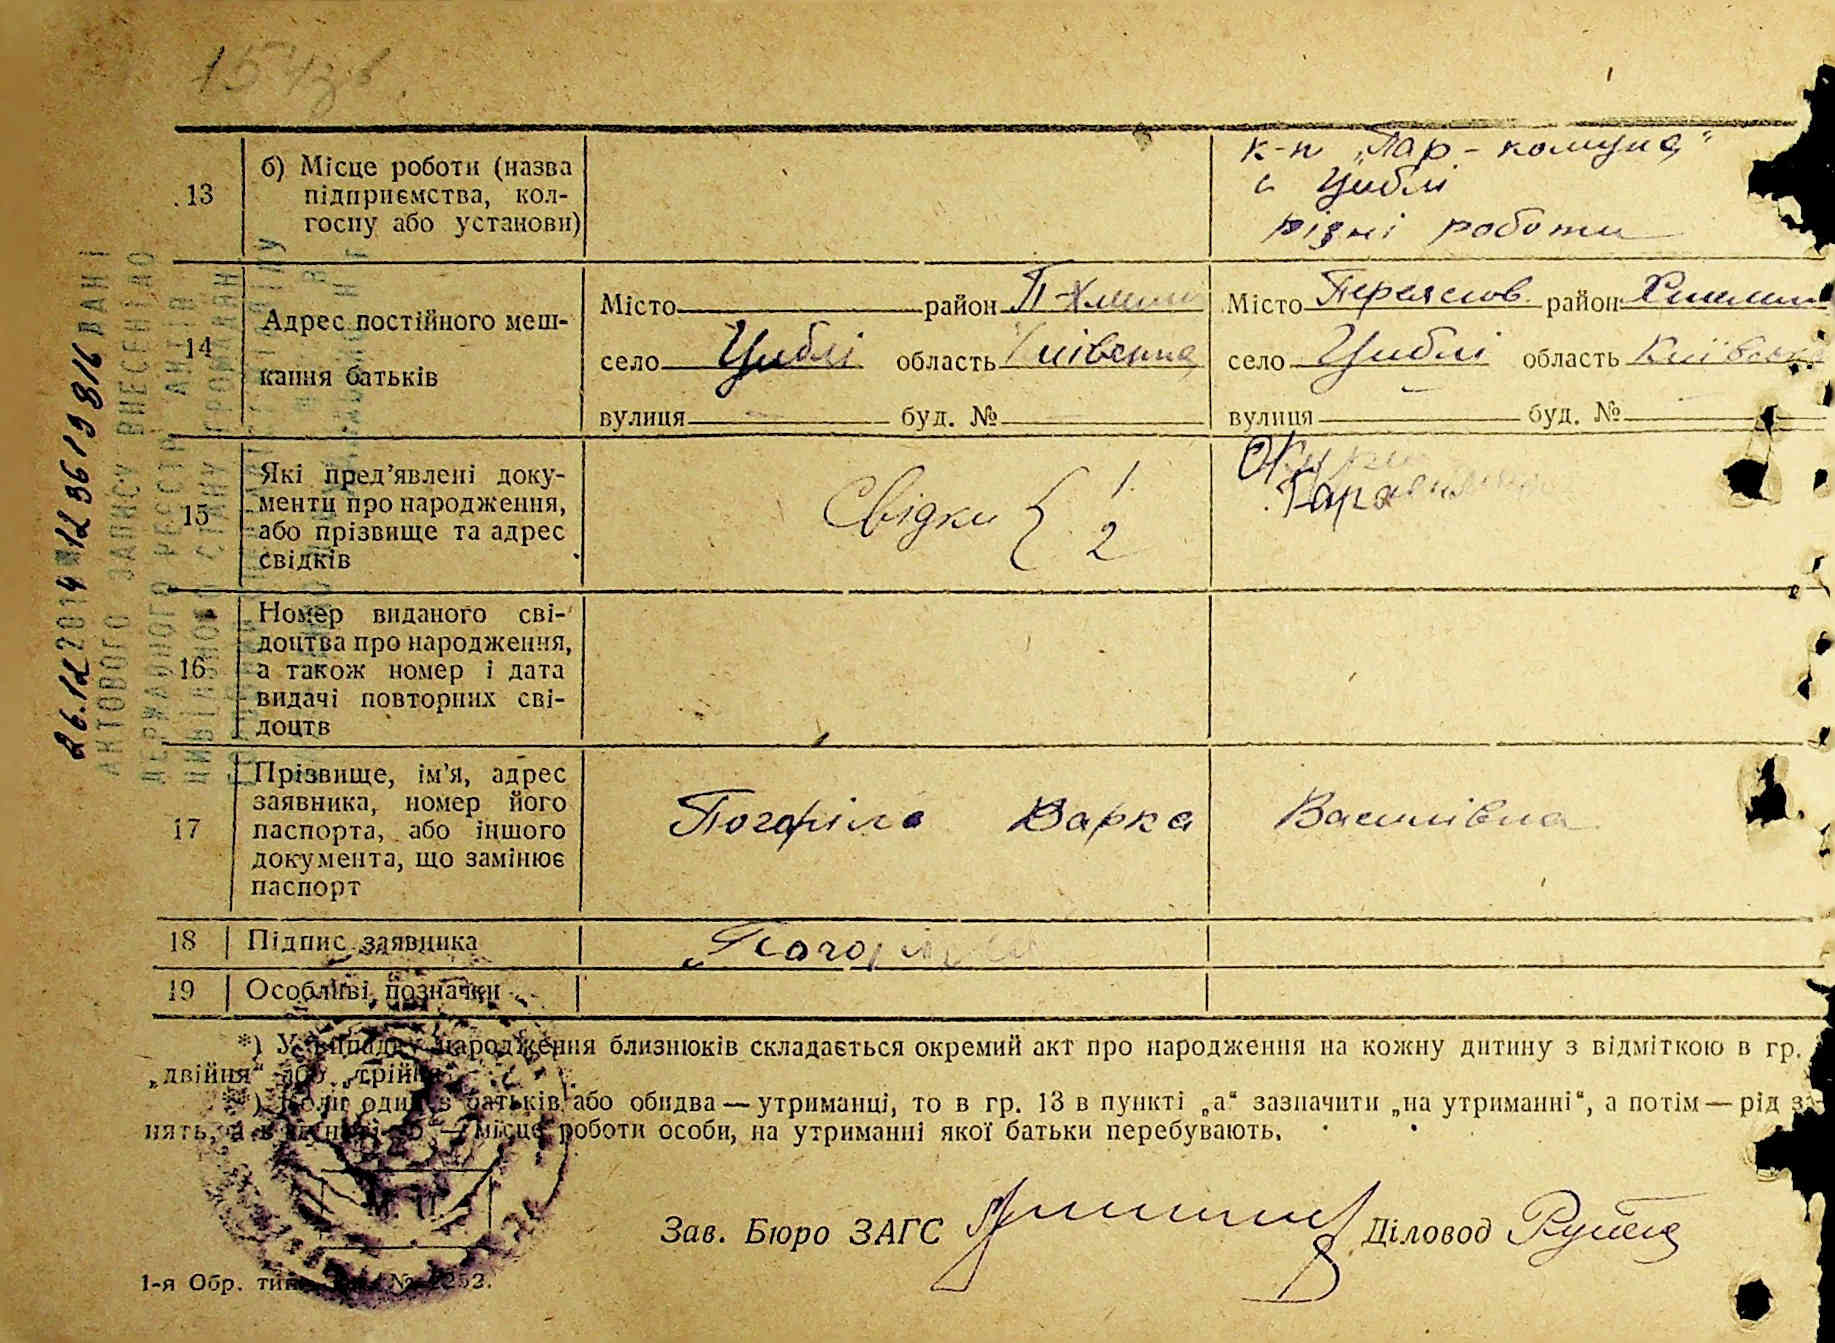 к-п „Пар-комуна"
с Циблі
різні роботи
13
б) Місце роботи (назва
підприємства, кол-
госпу або установи)
14
Адрес постійного меш-
кання батьків
Місто район П-Хмельн
село Циблі область Київська
вулиця буд. №
Місто Переяслов район Хмельн
село Циблі область Київська
вулиця буд. №
15
Які пред’явлені доку-
менти про народження,
або прізвище та адрес
свідків
Свідки { 1.
2
16
Номер виданого сві-
доцтва про народження,
а також номер і дата
видачі повторних сві-
доцтв
17
Прізвище, ім’я, адрес
заявника, номер його
паспорта, або іншого
документа, що замінює
паспорт
Погоріла Варка Василівна
18
Підпис заявника
19
Особливі позначки
*) У випадку народження близнюків складається окремий акт про народження на кожну дитину з відміткою в гр.
„двійня“ або „трійня“
**) Коли один з батьків або обидва — утриманці, то в гр. 13 в пункті „а“ зазначити „на утриманні“, а потім — рід за-
нять, а в пункті „б“ — місце роботи особи, на утриманні якої батьки перебувають.
Зав. Бюро ЗАГС
Діловод
1-я Обр. тип.
26.12 2014 12361981б
АКТОВОГО ЗАПИСУ ВНЕСЕНІ ДО